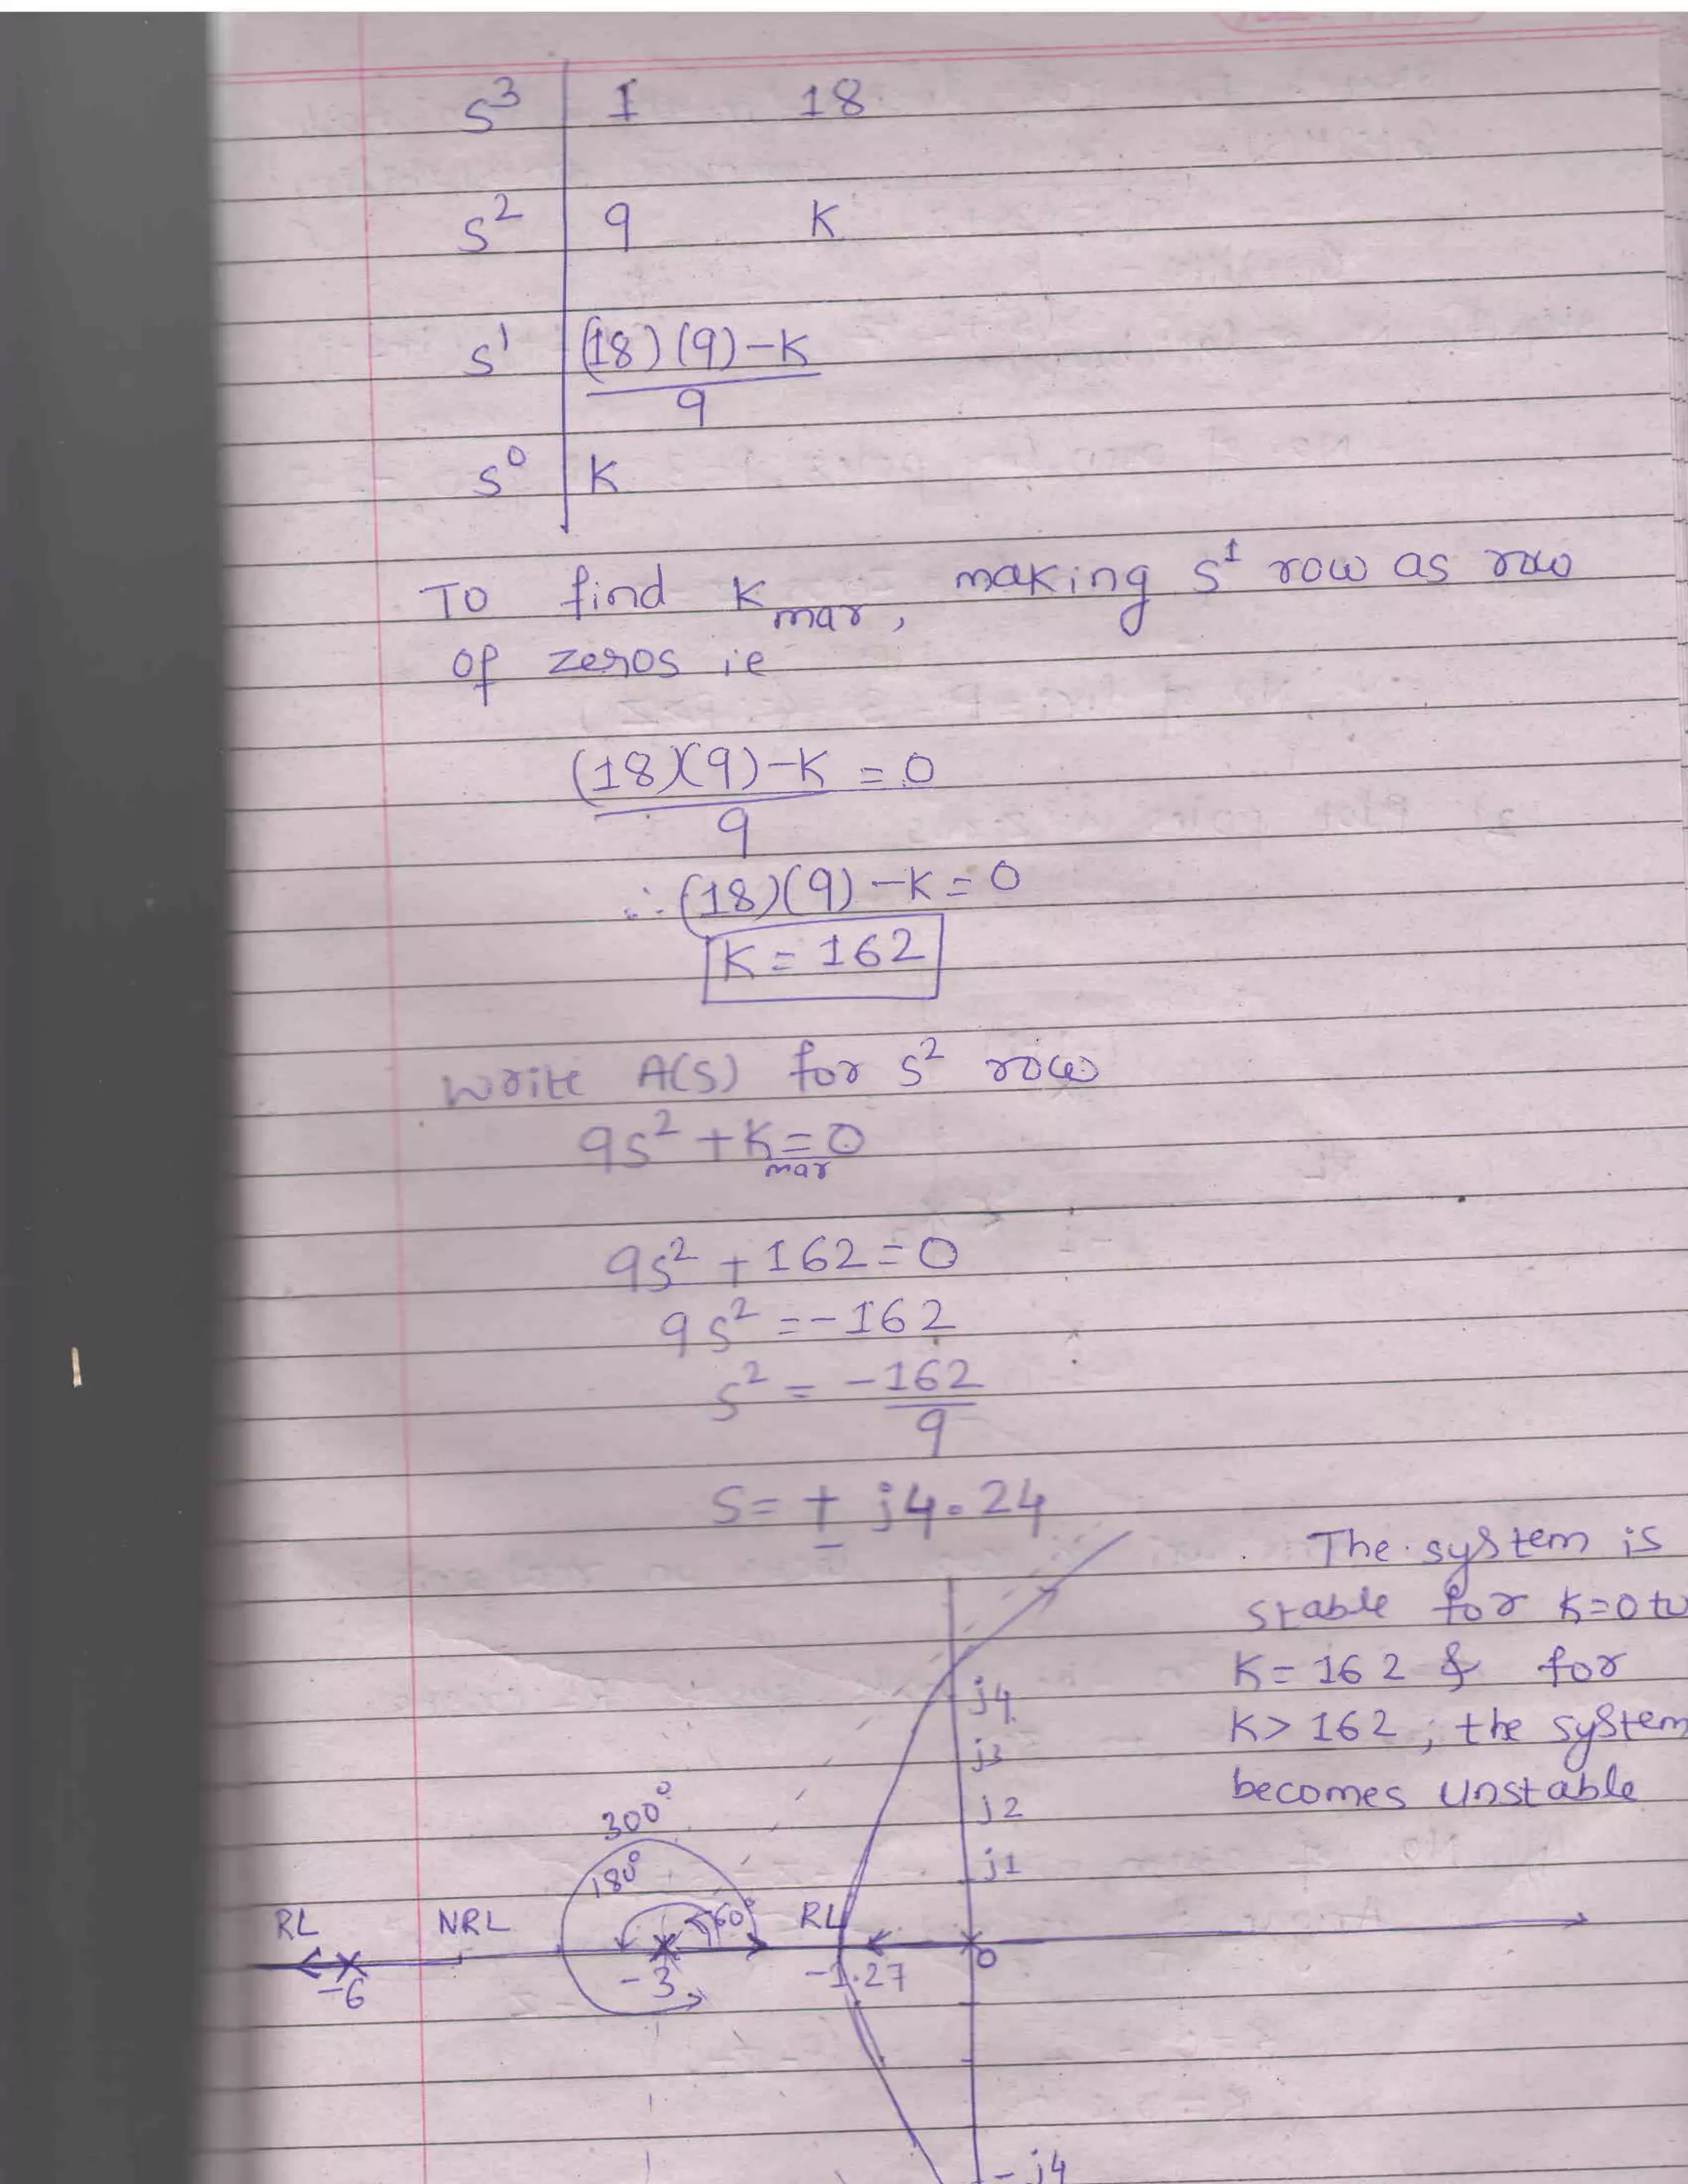 s³ 1 18
s² 9 K
s¹ (18)(9)-K
9
s⁰ K
To find Kmar, making s¹ row as row
of zeros ie
(18)(9)-K = 0
9
∴ (18)(9)-K = 0
K = 162
Write A(S) for s² row
9s² + Kmar = 0
9s² + 162 = 0
9s² = -162
s² = -162
9
S = ± j4.24
The system is
stable for K=0 to
K = 162 & for
K > 162, the system
becomes unstable
j4
j3
j2
j1
300°
180°
60°
RL NRL RL
-6 -3 -1.27 0
-j4